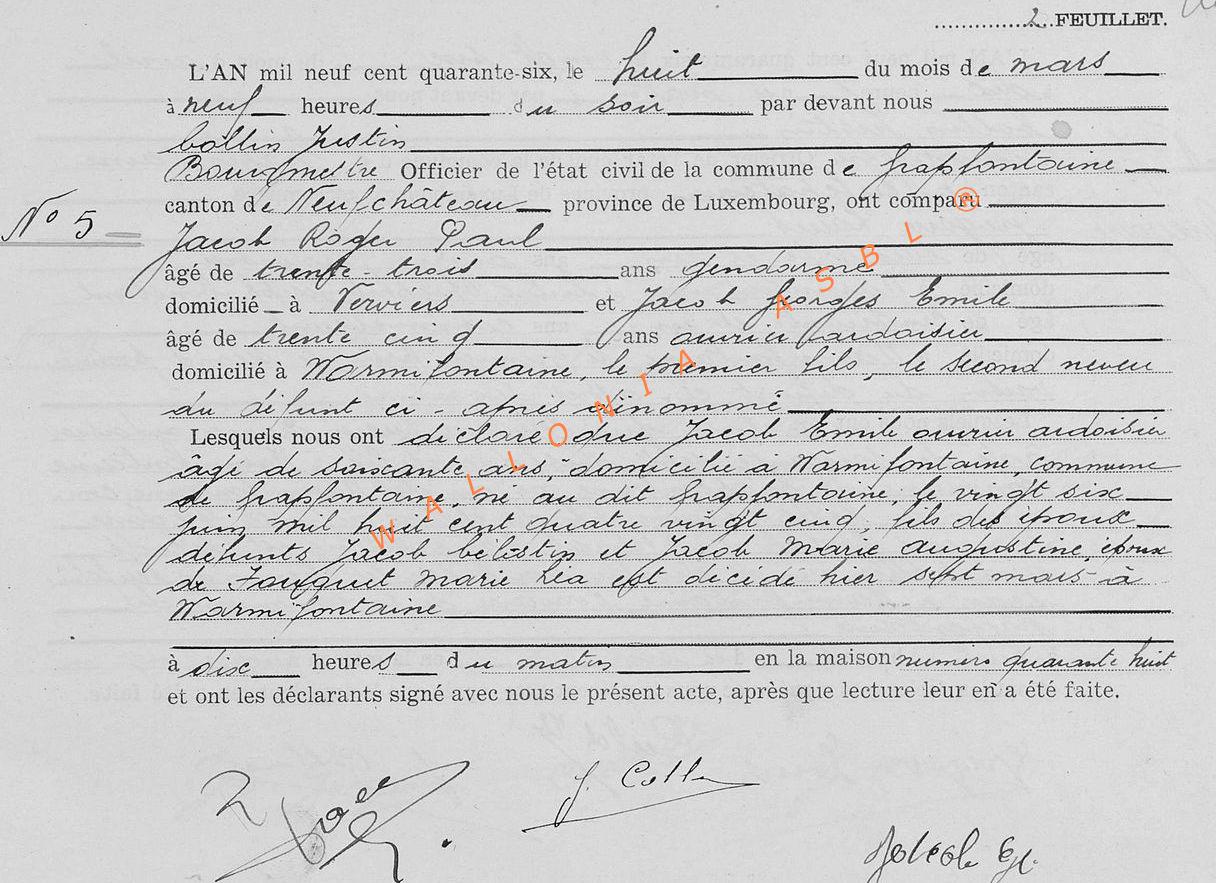 2 FEUILLET.
L'AN mil neuf cent quarante-six, le huit du mois de mars
à neuf heures du soir par devant nous
Collin Justin
Bourgmestre Officier de l'état civil de la commune de Grapfontaine
canton de Neufchâteau province de Luxembourg, ont comparu
N° 5
Jacob Roger Paul
âgé de trente-trois ans gendarme
domicilié à Verviers et Jacob Georges Emile
âgé de trente cinq ans ouvrier ardoisier
domicilié à Warmifontaine, le premier fils, le second neveu
du défunt ci-après dénommé
Lesquels nous ont déclaré que Jacob Emile ouvrier ardoisier
âgé de soixante ans, domicilié à Warmifontaine, commune
de Grapfontaine, né au dit Grapfontaine, le vingt six
juin mil huit cent quatre vingt cinq, fils des époux
défunts Jacob Célestin et Jacob Marie Augustine, époux
de Fouquet Marie Léa est décédé hier sept mars à
Warmifontaine
à dix heures du matin en la maison numéro quarante huit
et ont les déclarants signé avec nous le présent acte, après que lecture leur en a été faite.
J. Collin
Jacob G.
WALLONIA ASBL ®